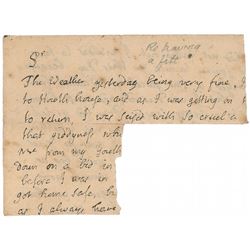 Re having
a fitt
Sr
The Weather yesterday being very fine, I
to house; and as I was getting on
to return, I was seized with so cruel a
that giddyness wh
me from my youth
down on a bed in
before I was in
got home safe, b
as I always have